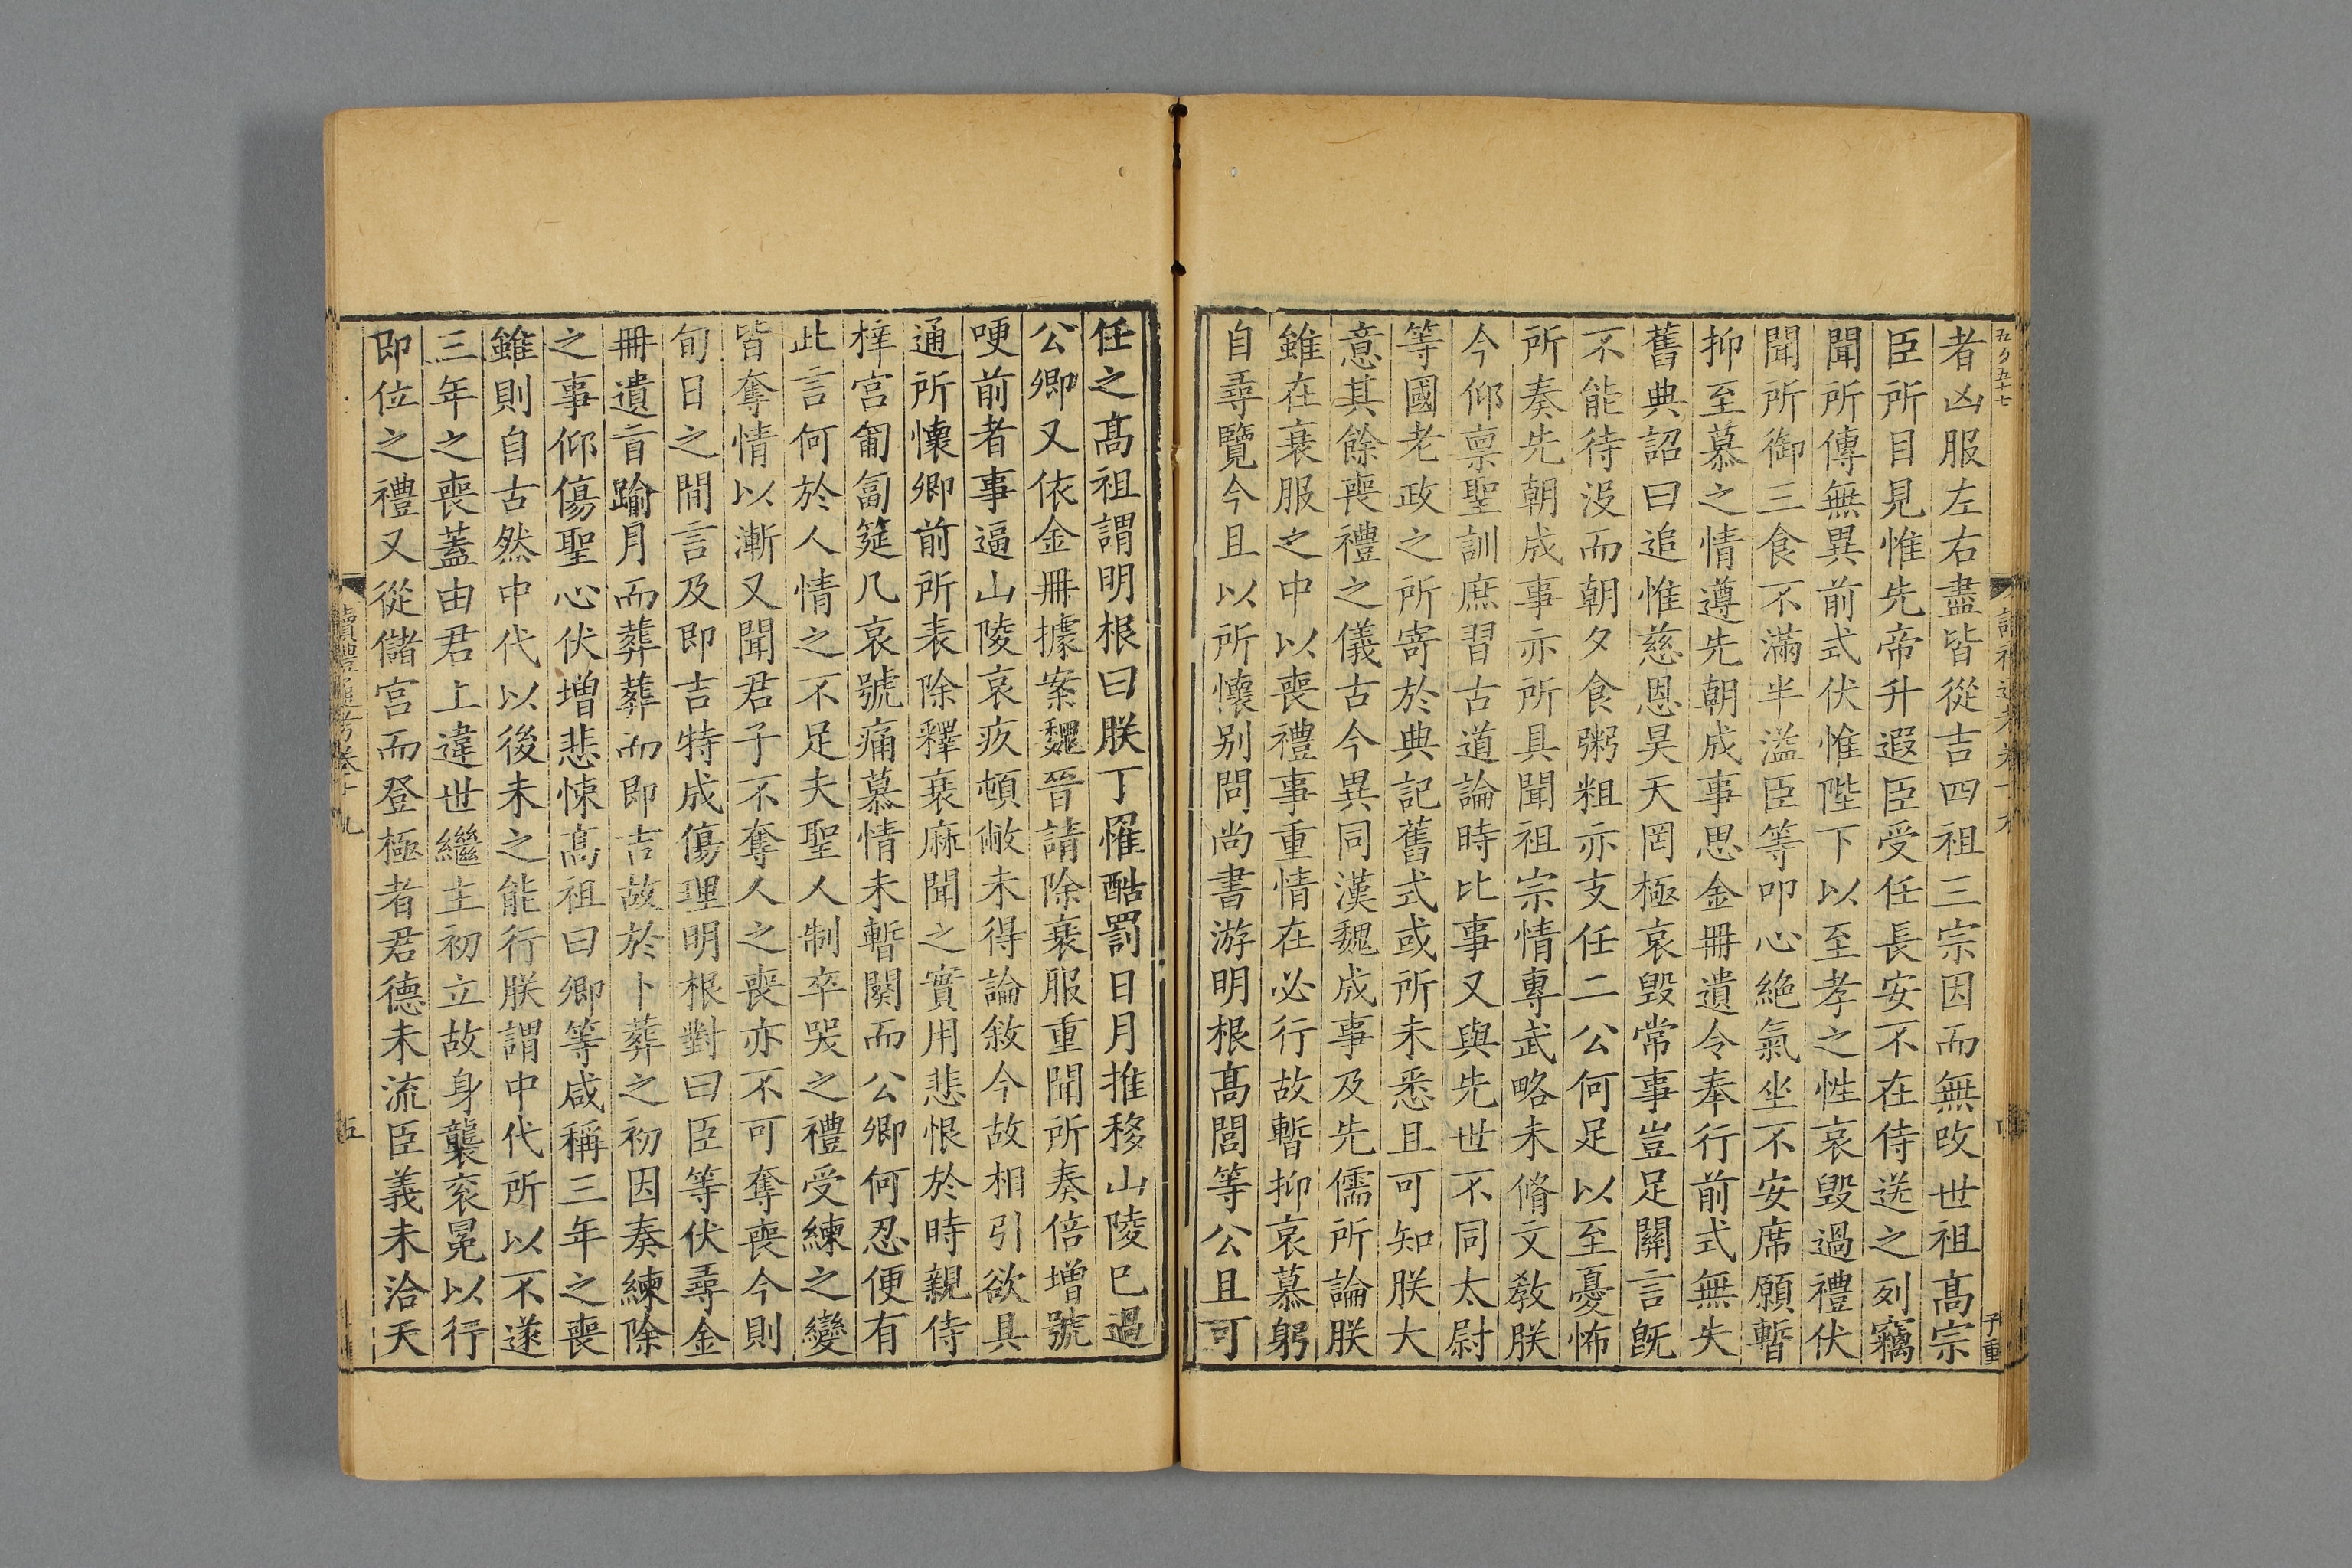 者凶服左右盡皆從吉四祖三宗因而無攺世祖髙宗
臣所目見惟先帝升遐臣受任長安不在侍送之列竊
聞所傳無異前式伏惟陛下以至孝之性哀毀過禮伏
聞所御三食不滿半溢臣等叩心絶氣坐不安席願暫
抑至慕之情遵先朝成事思金冊遺令奉行前式無失
舊典詔曰追惟慈恩昊天罔極哀毀常事豈足關言旣
不能待沒而朝夕食粥粗亦支任二公何足以至憂怖
所奏先朝成事亦所具聞祖宗情專武略未脩文教朕
今仰禀聖訓庶習古道論時比事又與先世不同太尉
等國老政之所寄於典記舊式或所未悉且可知朕大
意其餘喪禮之儀古今異同漢魏成事及先儒所論朕
雖在衰服之中以喪禮事重情在必行故暫抑哀慕躬
自尋覽今且以所懷别問尚書游明根髙閭等公且可
任之髙祖謂明根曰朕丁罹酷罰日月推移山陵巳過
公卿又依金冊據案魏晉請除衰服重聞所奏倍增號
哽前者事逼山陵哀疚頓敝未得論敘今故相引欲具
通所懷卿前所表除釋衰麻聞之實用悲恨於時親侍
梓宮匍匐筵几哀號痛慕情未暫闋而公卿何忍便有
此言何於人情之不足夫聖人制卒哭之禮受練之變
皆奪情以漸又聞君子不奪人之喪亦不可奪喪今則
旬日之閒言及即吉特成傷理明根對曰臣等伏尋金
冊遺㫖踰月而葬葬而即吉故於卜葬之初因奏練除
之事仰傷聖心伏增悲悚髙祖曰卿等咸稱三年之喪
雖則自古然中代以後未之能行朕謂中代所以不遂
三年之喪蓋由君上違世繼主初立故身襲衮冕以行
即位之禮又從儲宮而登極者君德未流臣義未洽天
讀禮通考卷十九
五